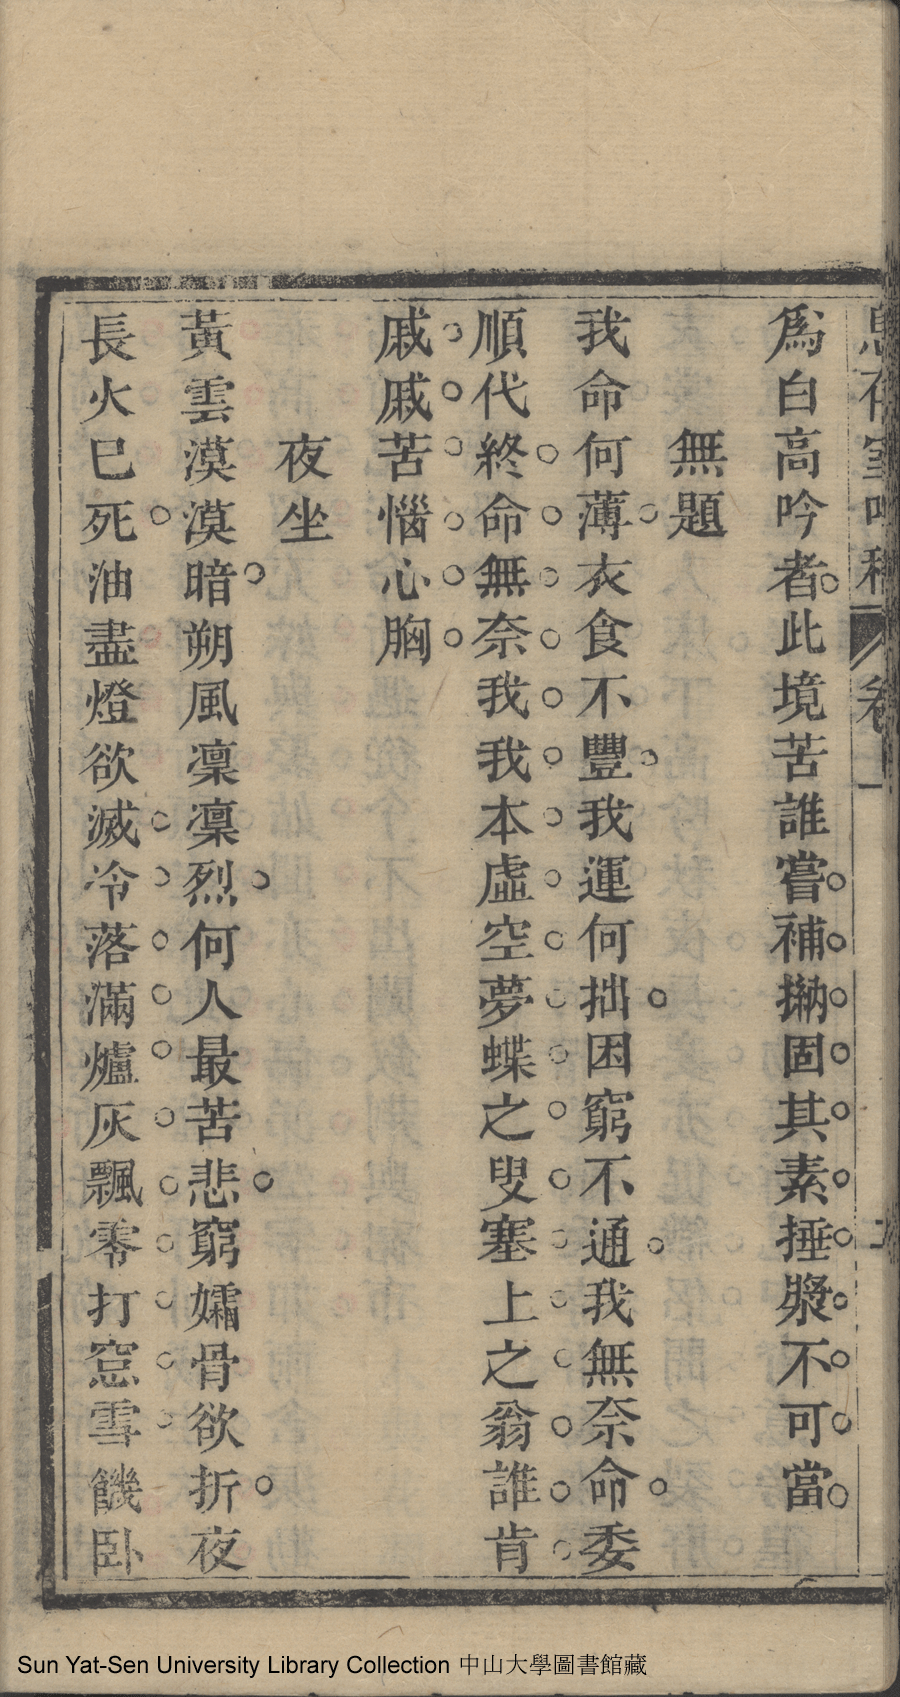 爲白高吟者此境苦誰嘗補搠固其素捶漿不可當
無題
我命何薄衣食不豐我運何拙困窮不通我無奈命委
順代終命無奈我我本虛空夢蝶之叟塞上之翁誰肯
戚戚苦惱心胸
夜坐
黃雲漠漠暗朔風凜凜烈何人最苦悲窮孀骨欲折夜
長火巳死油盡燈欲滅冷落滿爐灰飄零打窓雪饑卧
Sun Yat-Sen University Library Collection 中山大學圖書館藏